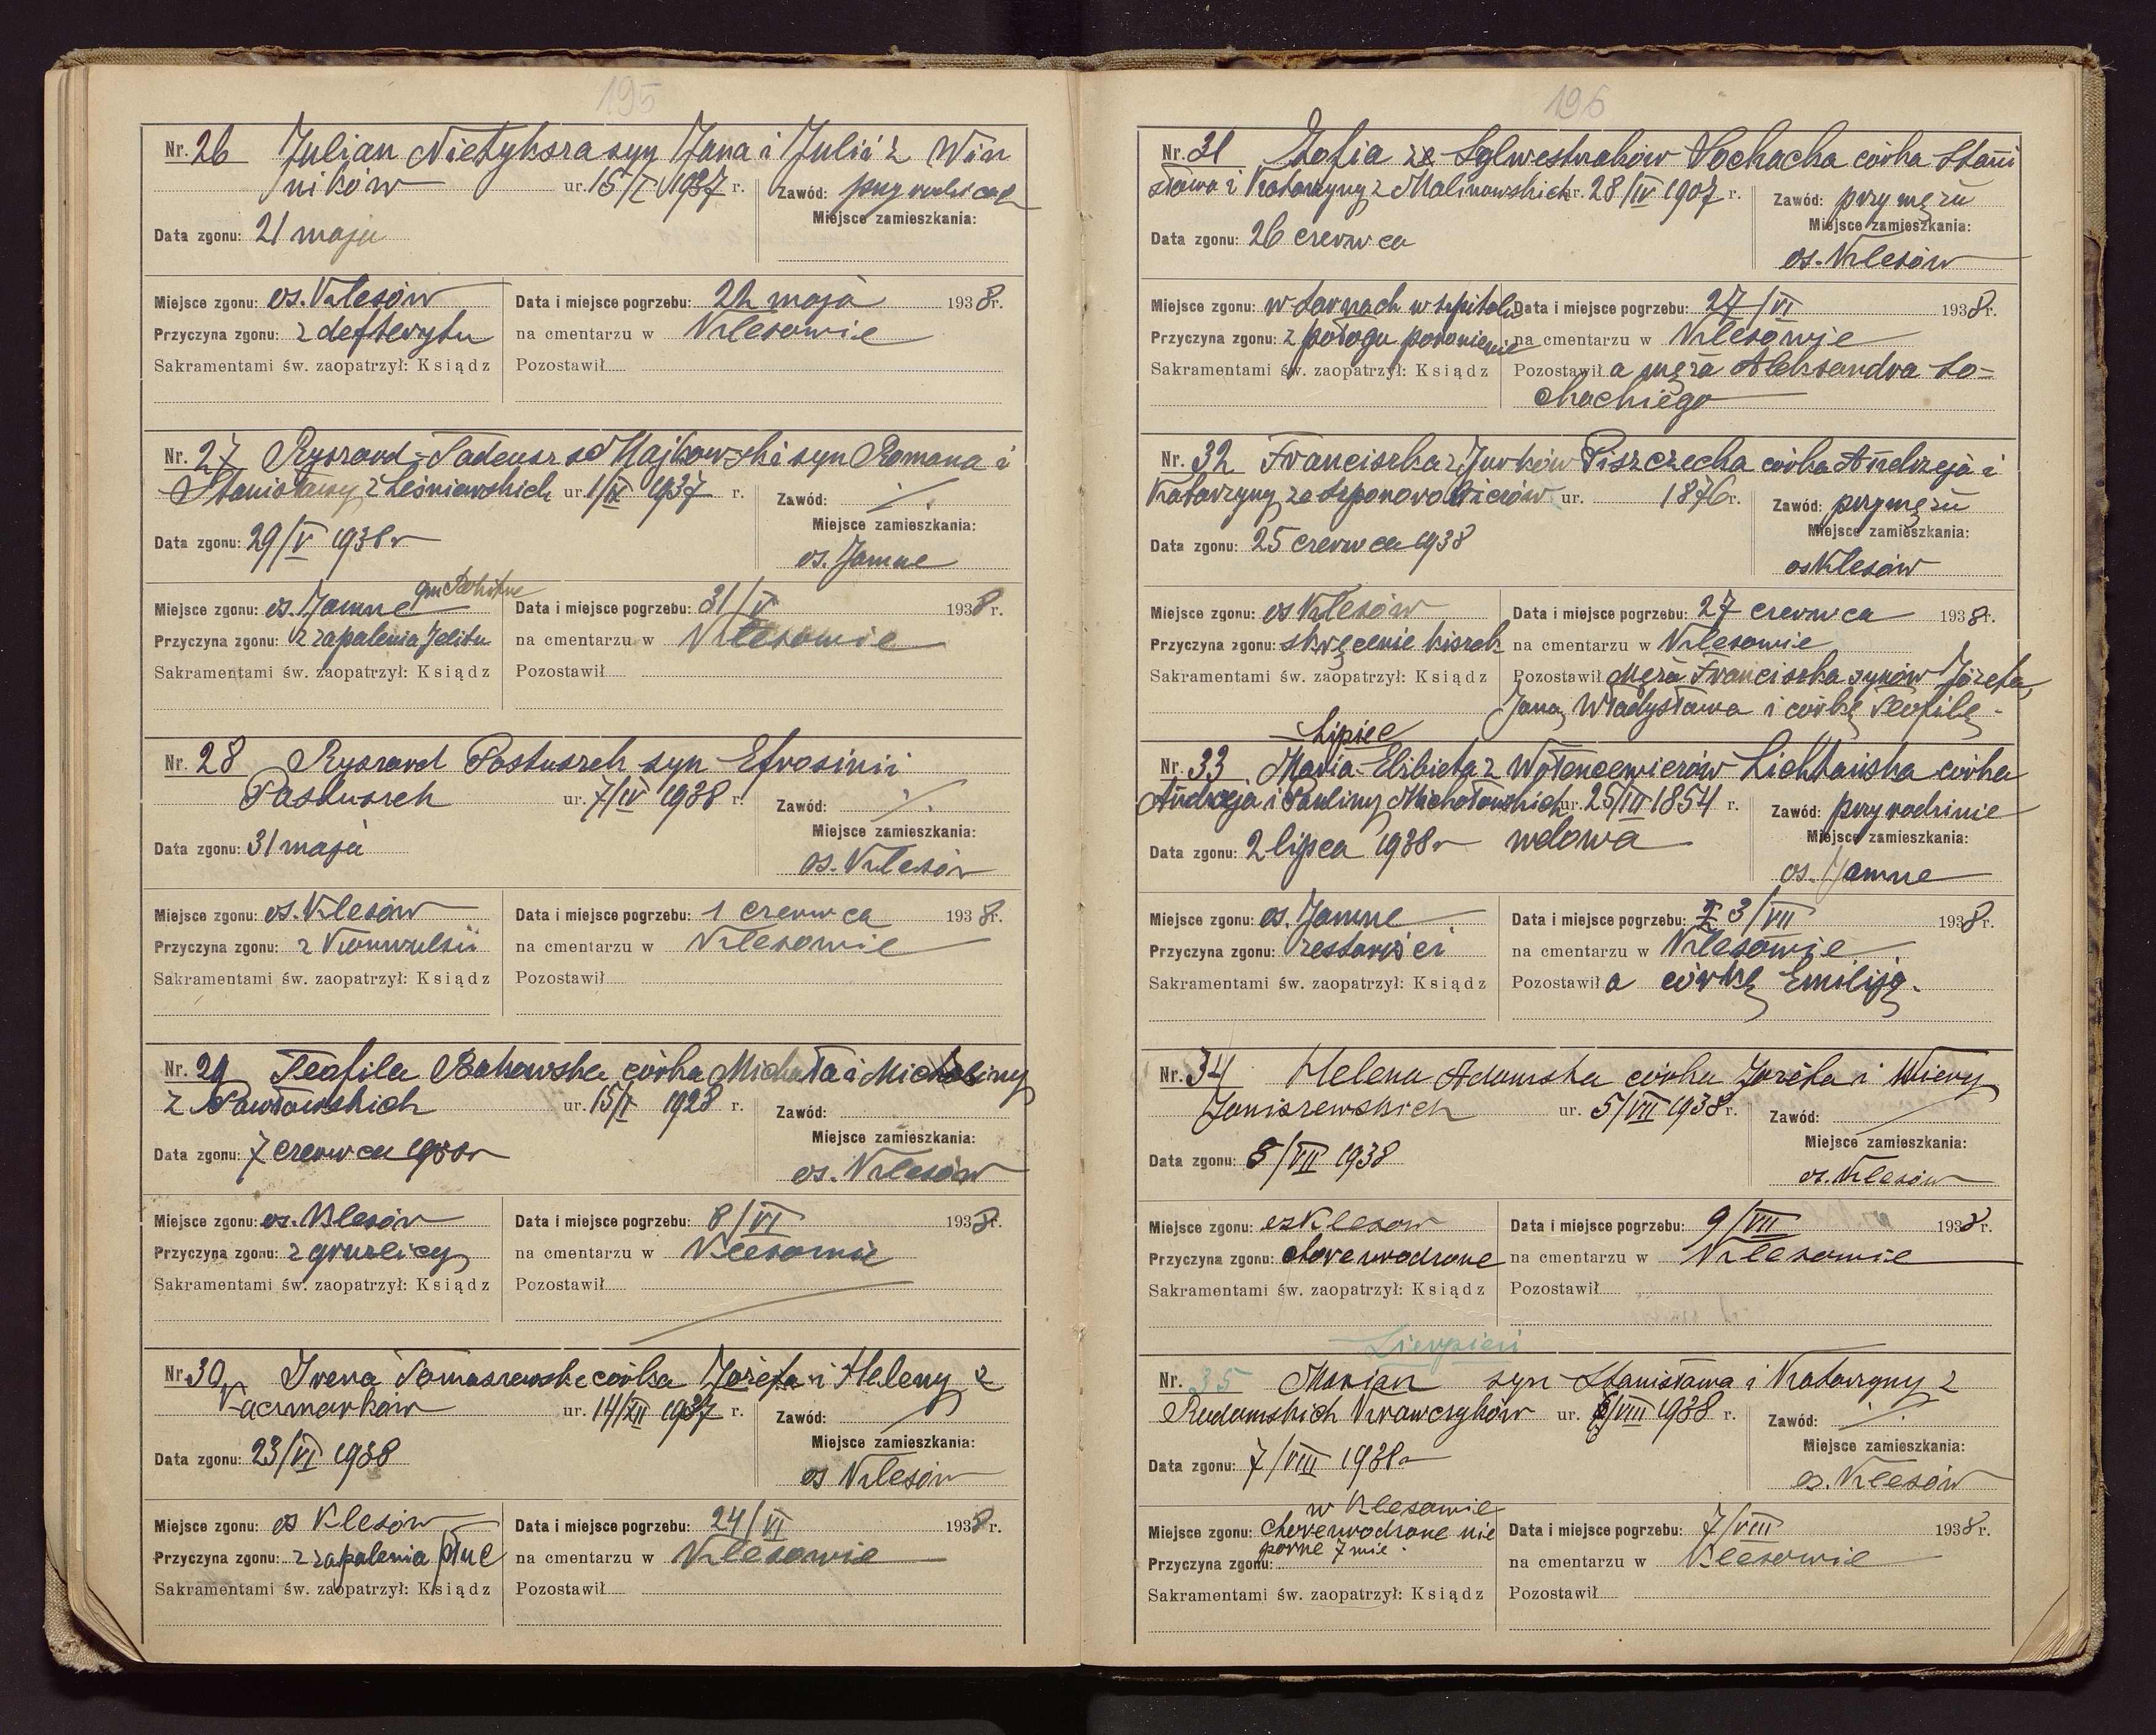 195
Nr. 26 Julian Nietyksza syn Jana i Julii z Win
ników ur. 15/I 1937 r. Zawód: przy rodzicach
Miejsce zamieszkania:
Data zgonu: 21 maja
Miejsce zgonu: os. Klesów Data i miejsce pogrzebu: 22 maja 1938 r.
Przyczyna zgonu: z defterytu na cmentarzu w Klesowie
Sakramentami św. zaopatrzył: Ksiądz Pozostawił
Nr. 27 Ryszard-Tadeusz Majkowski syn Romana i
Stanisławy z Leśniewskich ur. 1/IX 1937 r. Zawód: ./.
Miejsce zamieszkania:
Data zgonu: 29/V 1938 r
os. Jamne
Miejsce zgonu: os. Jamne Data i miejsce pogrzebu: 31/V 1938 r.
Przyczyna zgonu: z zapalenia jelitu na cmentarzu w Klesowie
Sakramentami św. zaopatrzył: Ksiądz Pozostawił
Nr. 28 Ryszard Pastuszek syn Efrosinii
Pastuszek ur. 7/IV 1938 r. Zawód: ./.
Miejsce zamieszkania:
Data zgonu: 31 maja
os. Klesów
Miejsce zgonu: os. Klesów Data i miejsce pogrzebu: 1 czerwca 1938 r.
Przyczyna zgonu: z Konwulsii na cmentarzu w Klesowie
Sakramentami św. zaopatrzył: Ksiądz Pozostawił
Nr. 29 Teofila Bakowska córka Michała i Michaliny
z Pawłowskich ur. 15/I 1928 r. Zawód:
Miejsce zamieszkania:
Data zgonu: 7 czerwca
os. Klesów
Miejsce zgonu: os. Klesów Data i miejsce pogrzebu: 8/VI 1938 r.
Przyczyna zgonu: z gruzlicy na cmentarzu w Klesowie
Sakramentami św. zaopatrzył: Ksiądz Pozostawił
Nr. 30 Irena Tomaszewska córka Józefa i Heleny z
Kaczmarków ur. 14/XII 1937 r. Zawód:
Miejsce zamieszkania:
Data zgonu: 23/VI 1938
os Klesów
Miejsce zgonu: os Klesów Data i miejsce pogrzebu: 24/VI 1938 r.
Przyczyna zgonu: z zapalenia płuc na cmentarzu w Klesowie
Sakramentami św. zaopatrzył: Ksiądz Pozostawił
196
Nr. 31 Zofia ze Sylwestraków Sochacka córka Stani
sława i Katarzyny z Malinowskich ur. 28/IV 1907 r. Zawód: przy mężu
Miejsce zamieszkania:
Data zgonu: 26 czerwca
os. Klesów
Miejsce zgonu: w Sarnach w szpitalu Data i miejsce pogrzebu: 27/VI 1938 r.
Przyczyna zgonu: z połogu poronienie na cmentarzu w Klesowie
Sakramentami św. zaopatrzył: Ksiądz Pozostawił a męża Aleksandra So-
chackiego
Nr. 32 Franciszka z Jurków Piszczecka córka Andrzeja i
Katarzyny ze ur. 1876 r. Zawód: przy mężu
Miejsce zamieszkania:
Data zgonu: 25 czerwca 1938
os Klesów
Miejsce zgonu: os Klesów Data i miejsce pogrzebu: 27 czerwca 1938 r.
Przyczyna zgonu: skręcenie kiszek na cmentarzu w Klesowie
Sakramentami św. zaopatrzył: Ksiądz Pozostawił męża Franciszka synów Józefa,
Jana, Władysława i córkę Teofilę.
Lipiec
Nr. 33 Maria-Elżbieta z Lichtańska córka
Andrzeja i Pauliny Michałowskich ur. 25/III 1854 r. Zawód: przy rodzinie
Miejsce zamieszkania:
Data zgonu: 2 lipca 1938 r wdowa
os. Jamne
Miejsce zgonu: os. Jamne Data i miejsce pogrzebu: 3/VII 1938 r.
Przyczyna zgonu: ze starości na cmentarzu w Klesowie
Sakramentami św. zaopatrzył: Ksiądz Pozostawił a córkę Emilję.
Nr. 34 Helena Adamska córka Józefa i Wiery
Janiszewskich ur. 5/VII 1938 r. Zawód:
Miejsce zamieszkania:
Data zgonu: 8/VII 1938
os. Klesów
Miejsce zgonu: os Klesow Data i miejsce pogrzebu: 9/VII 1938 r.
Przyczyna zgonu: chore urodzone na cmentarzu w Klesowie
Sakramentami św. zaopatrzył: Ksiądz Pozostawił
Sierpień
Nr. 35 Marian syn Stanisława i Katarzyny z
Radomskich Krawczyków ur. /VIII 1938 r. Zawód: ./.
Miejsce zamieszkania:
Data zgonu: 7/VIII 1938 r
os. Klesów
w Klesowie
Miejsce zgonu: chore urodzone nie Data i miejsce pogrzebu: 7/VIII 1938 r.
Przyczyna zgonu: na cmentarzu w Klesowie
Sakramentami św. zaopatrzył: Ksiądz Pozostawił